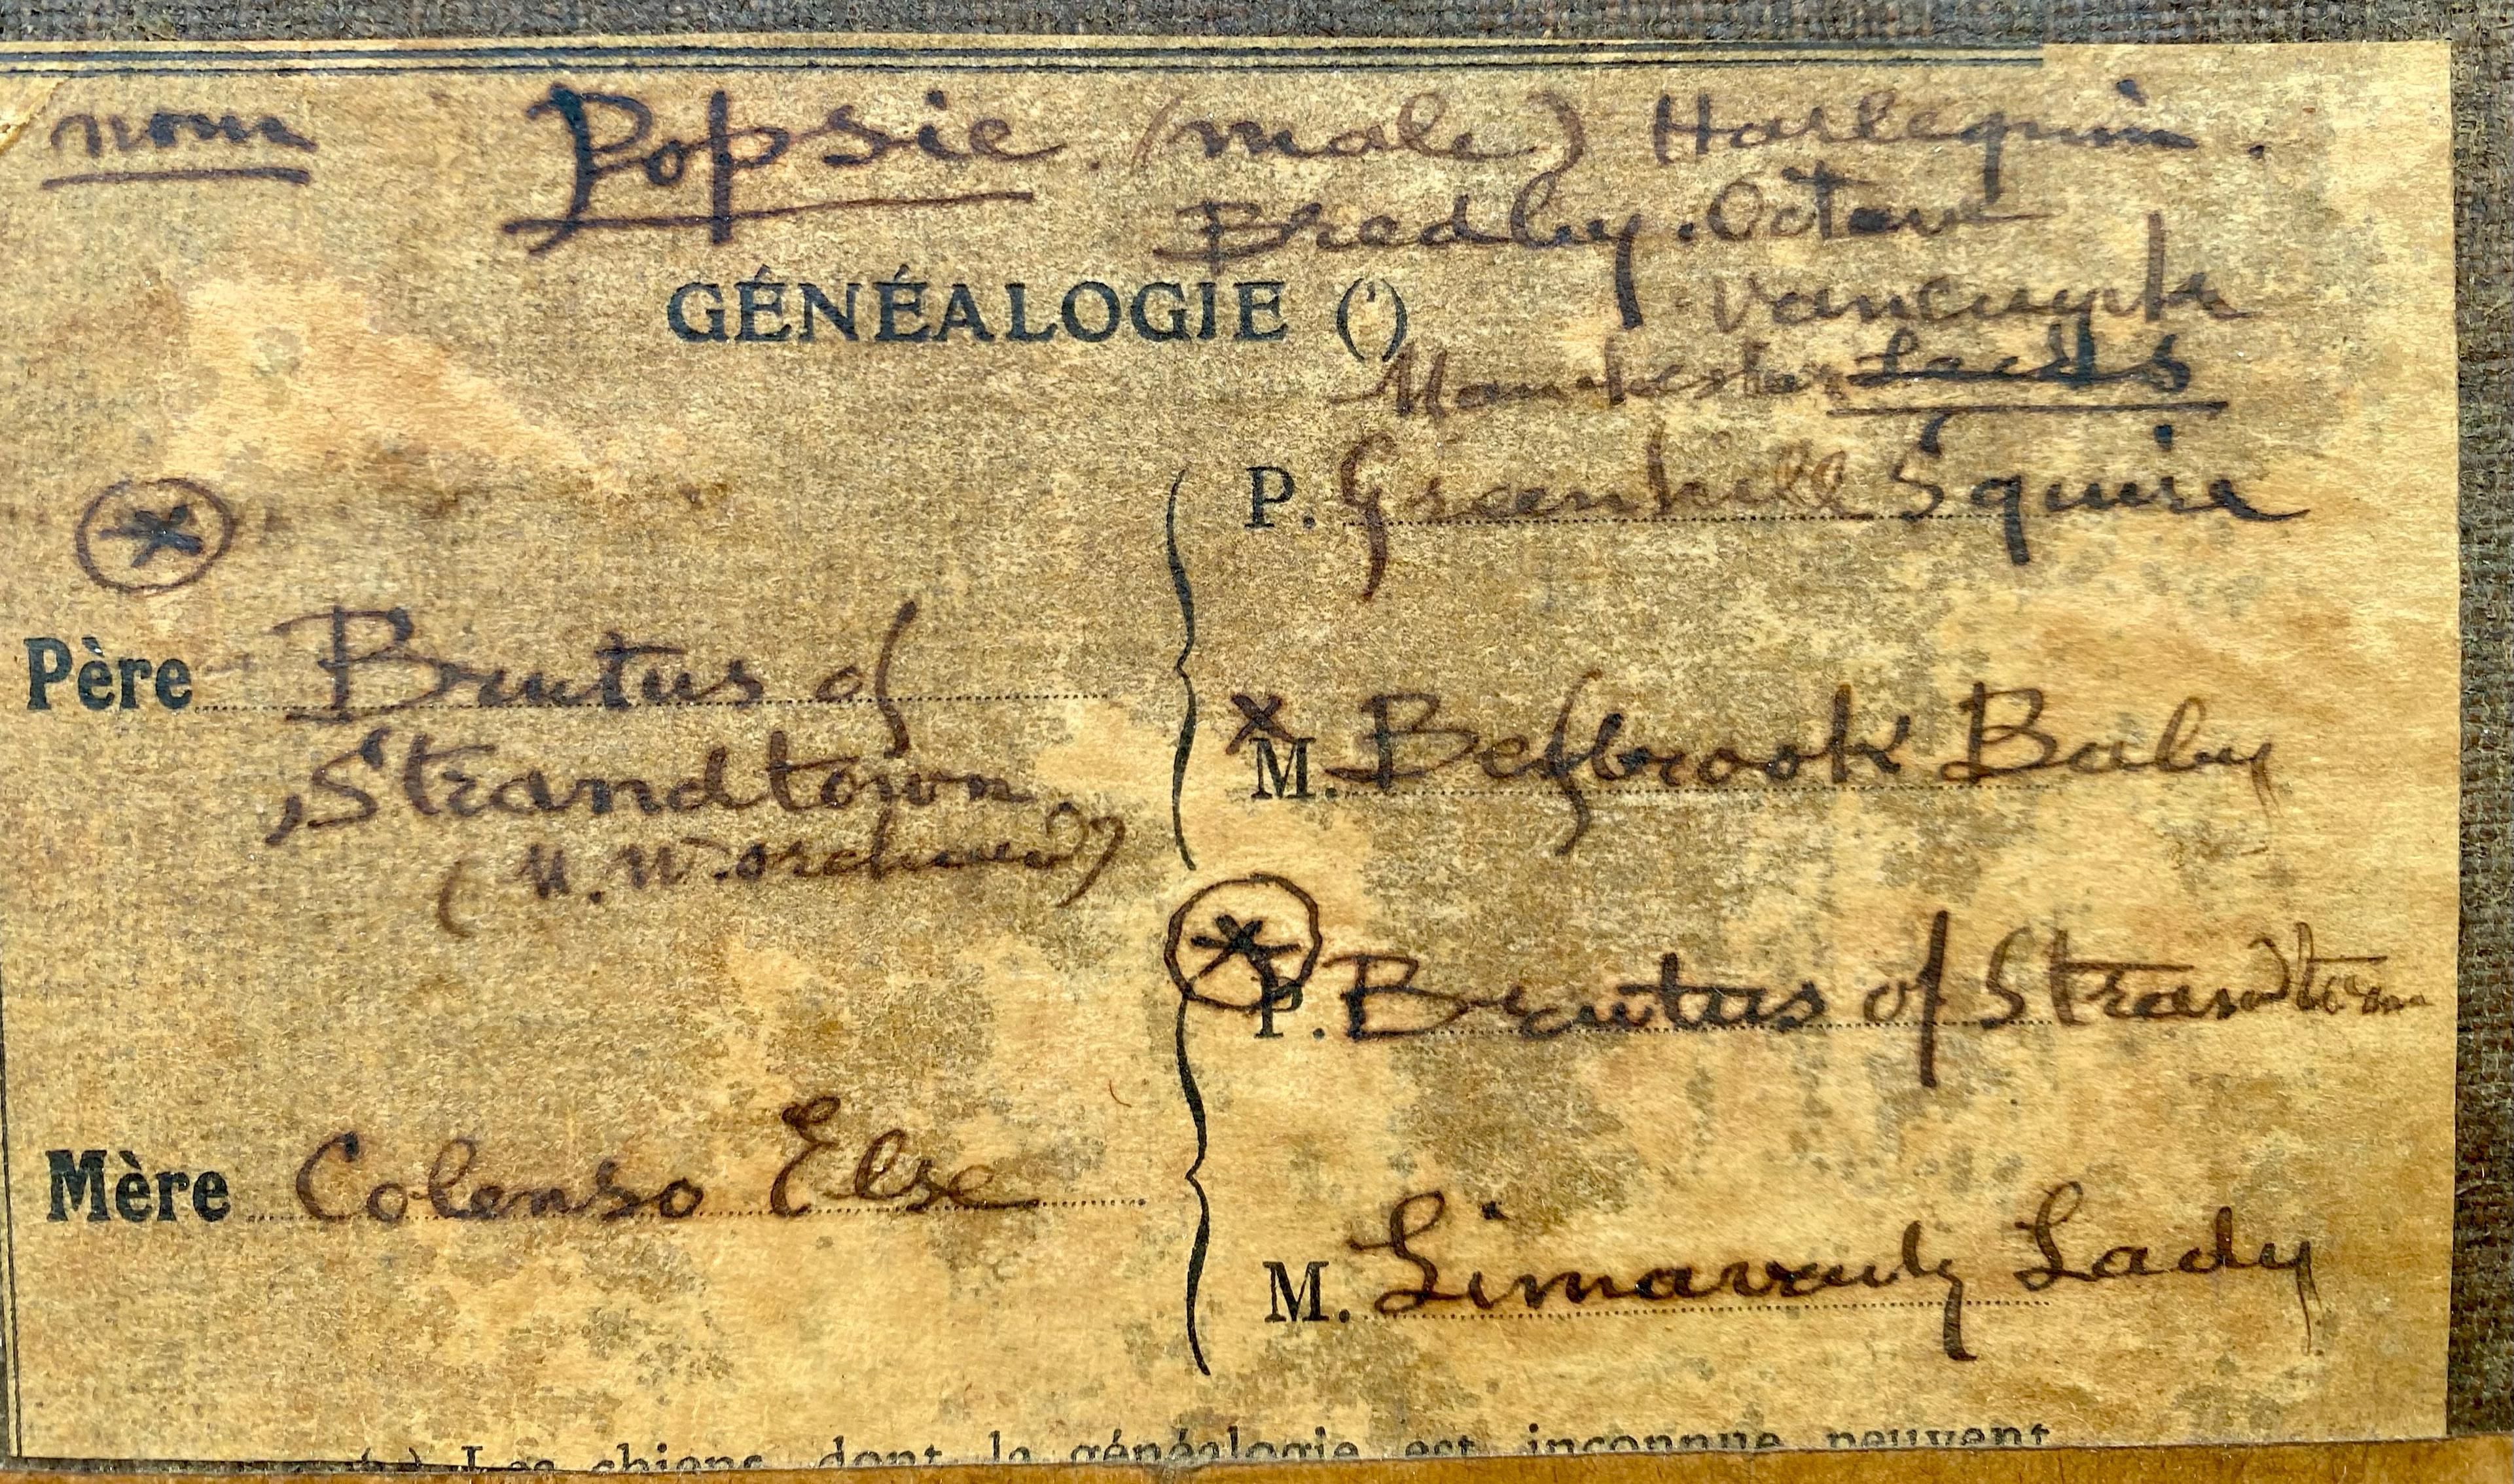 nom Popsie. (male) Harlequin.
Bred by. Octave
Vancuyck
GÉNÉALOGIE (')
Manchester Leeds
P. Greenhill Squire
Père Brutus of
Strandtown
M. Besbrook Baby
(M. W.
P. Brutus of Strandtown
Mère Colenso Else
M. Limavady Lady
Les chiens dont la généalogie est inconnue peuvent